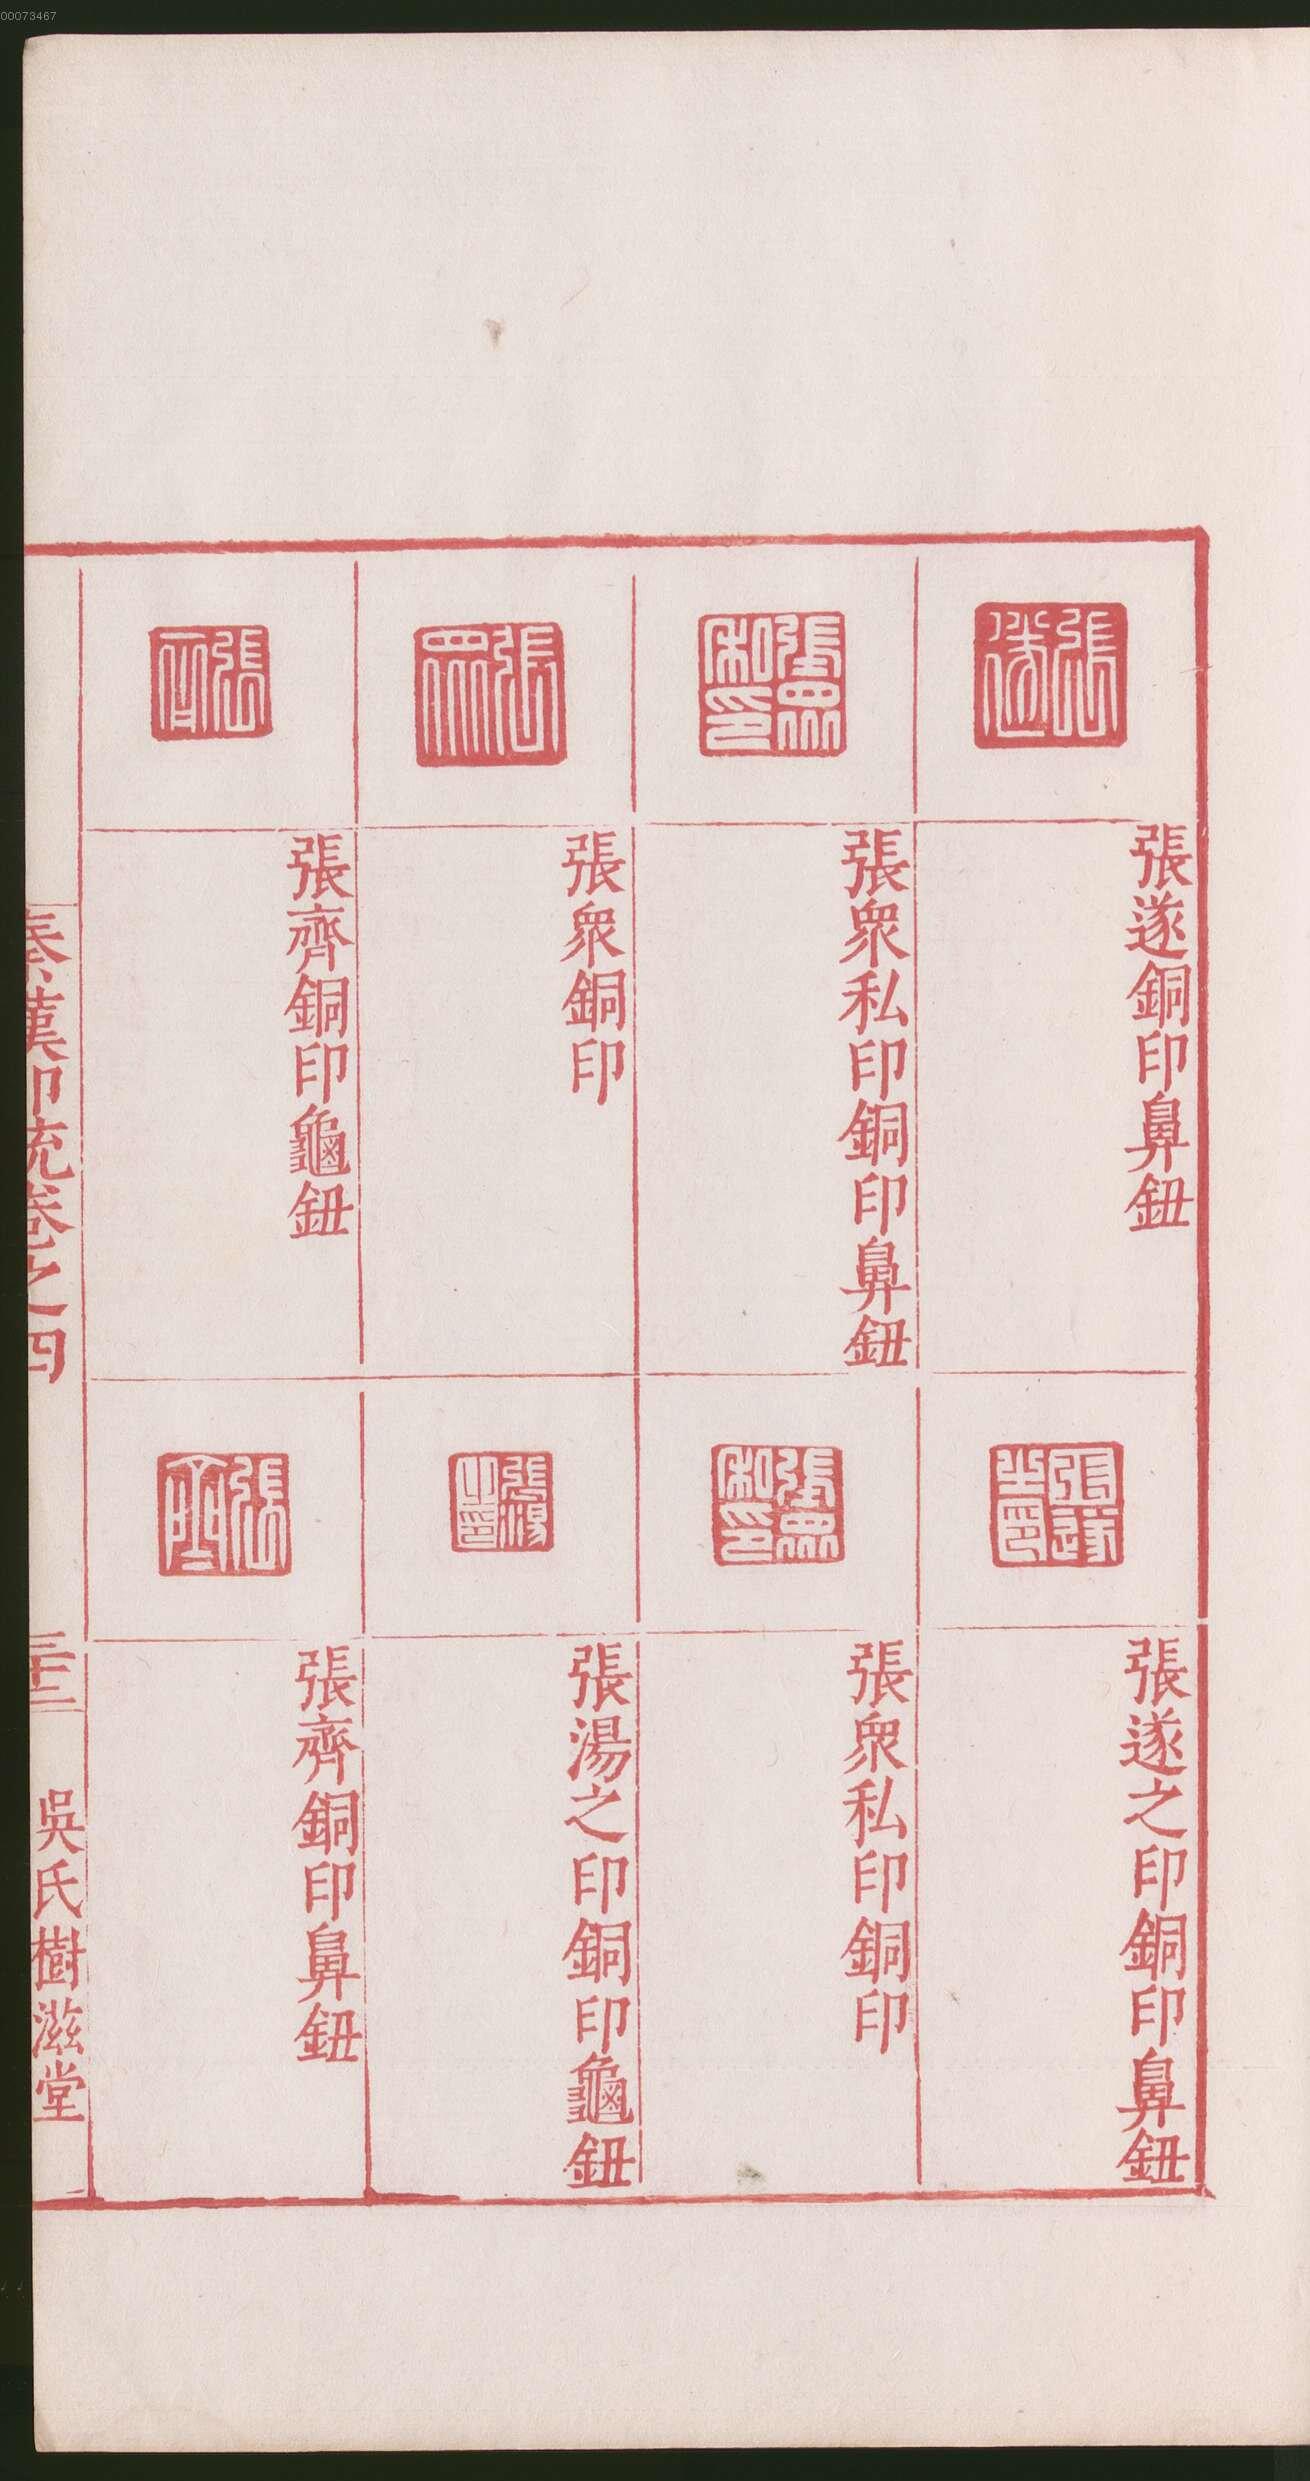 00073467
張遂
張遂銅印鼻鈕
張眾私印
張眾私印銅印鼻鈕
張眾
張眾銅印
張齊
張齊銅印龜鈕
張遂之印
張遂之印銅印鼻鈕
張眾私印
張眾私印銅印
張湯之印
張湯之印銅印龜鈕
張齊
張齊銅印鼻鈕
秦漢印統卷之四
吳氏樹滋堂